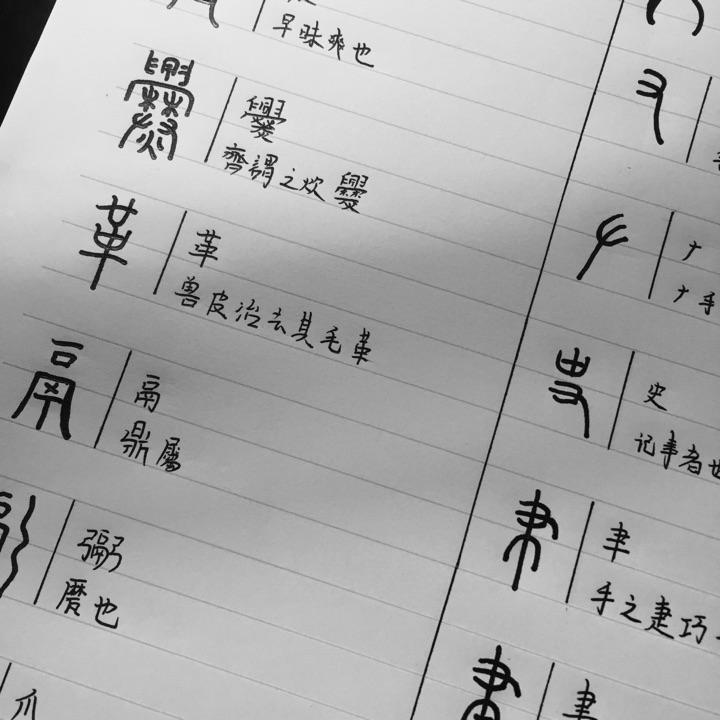 早昧爽也
爨
齊謂之炊爨
革
兽皮治去其毛革
鬲
鼎屬
䰜
厤也
爪
𠂇
𠂇手
史
记事者也
𦘒
手之疌巧
聿